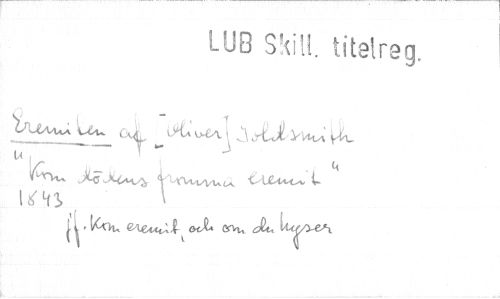 LUB Skill. titelreg.
Eremiten af [Oliver] Goldsmith
"Kom dödens fromma eremit"
1843
jf. Kom eremit, och om du hyser